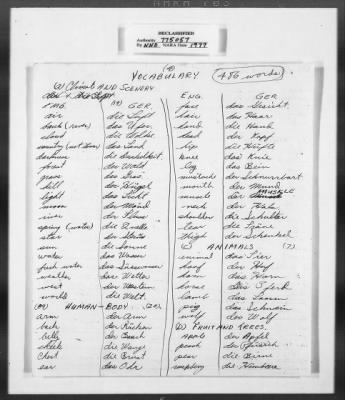 DECLASSIFIED
Authority 775057
By NND NARA Date 1977
(8)
VOCABULARY (486 words)
(a) Climate AND SCENERY
ENG. (19) GER.
air die Luft
bank (river) das Ufer
cloud die Wolke
country (not town) das Land
darkness die Dunkelheit
forest der Wald
grass das Gras
hill der Hügel
light das Licht
moon der Mond
river der Fluss
spring (water) die Quelle
star der Stern
sun die Sonne
water das Wasser
fresh water das Süsswasser
weather das Wetter
west der Westen
world die Welt
HUMAN-BODY
arm der Arm
back der Rücken
belly der Bauch
cheek die Wange
chest die Brust
ear das Ohr
ENG. GER
face das Gesicht
hair das Haar
hand die Hand
head der Kopf
hip die Hüfte
knee das Knie
leg das Bein
mustache der Schnurrbart
mouth der Mund
muscle der MUSKLE
neck der Hals
shoulder die Schulter
tear die Träne
thigh der Schenkel
(c) ANIMALS (7)
animal das Tier
hoof der Huf
horn das Horn
horse das Pferd
lamb das Lamm
pig das Schwein
wolf der Wolf
(d) FRUIT AND TREES
APPLE der Apfel
peach der Pfirsich
pear die Birne
raspberry die Himbeere